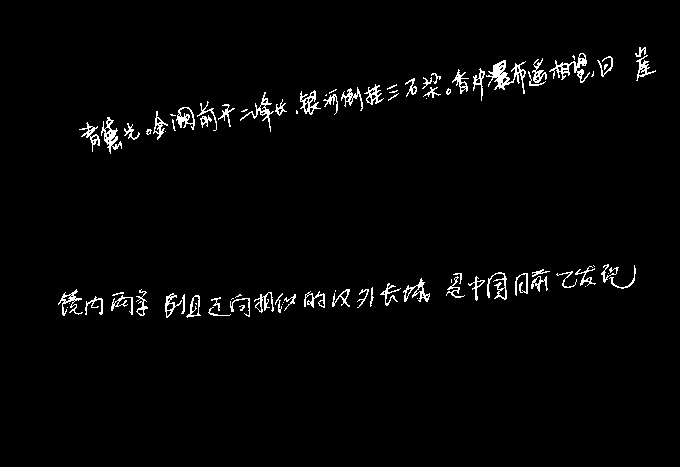 青黛光。金阙前开二峰长,银河倒挂三石梁。香炉瀑布遥相望,回崖
境内两条 列且走向相似的汉外长城 是中国目前已发现